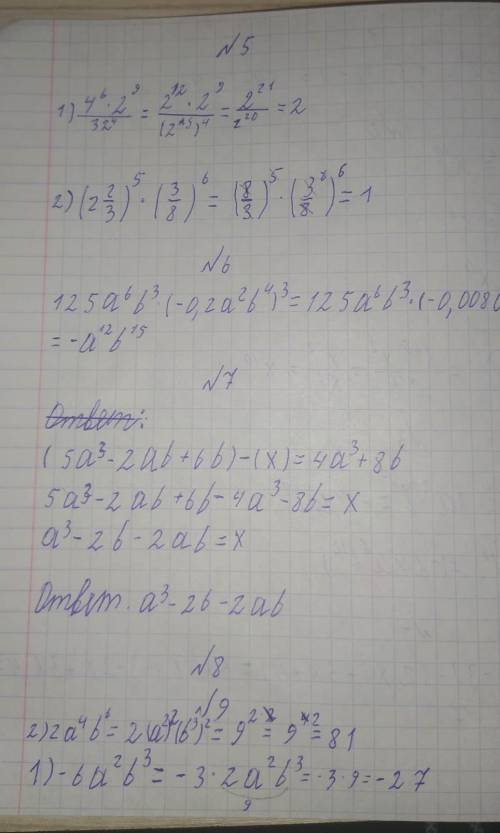 №5
1) 4⁶·2⁹/32⁴ = 2¹²·2⁹/(2⁵)⁴ = 2²¹/2²⁰ = 2
2) (2 2/3)⁵·(3/8)⁶ = (8/3)⁵·(3/8)⁶ = 1
№6
125a⁶b³·(-0,2a²b⁴)³ = 125a⁶b³·(-0,008
= -a¹²b¹⁵
№7
Ответ:
(5a³-2ab+6b)-(x)=4a³+8b
5a³-2ab+6b-4a³-8b=x
a³-2b-2ab=x
Ответ. a³-2b-2ab
№8
№9
2) 2a⁴b⁶ = 2(a²)²(b³)² = 9² = 9² = 81
1) -6a²b³ = -3·2a²b³ = -3·9 = -27
9